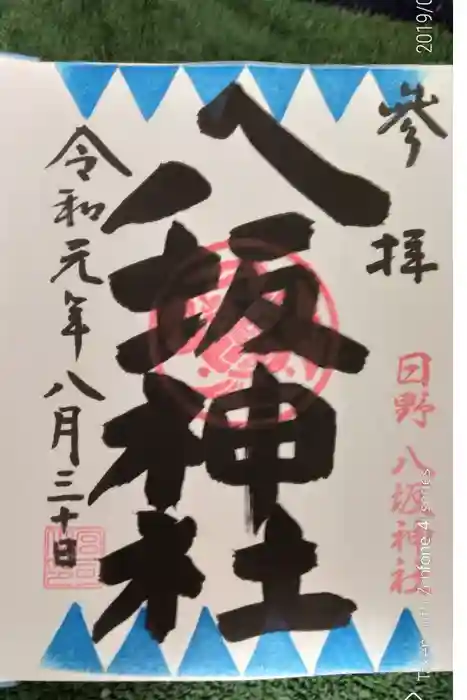 参拝
日野 八坂神社
八坂神社
令和元年八月三十日
2019/0
Zenfone 4 series